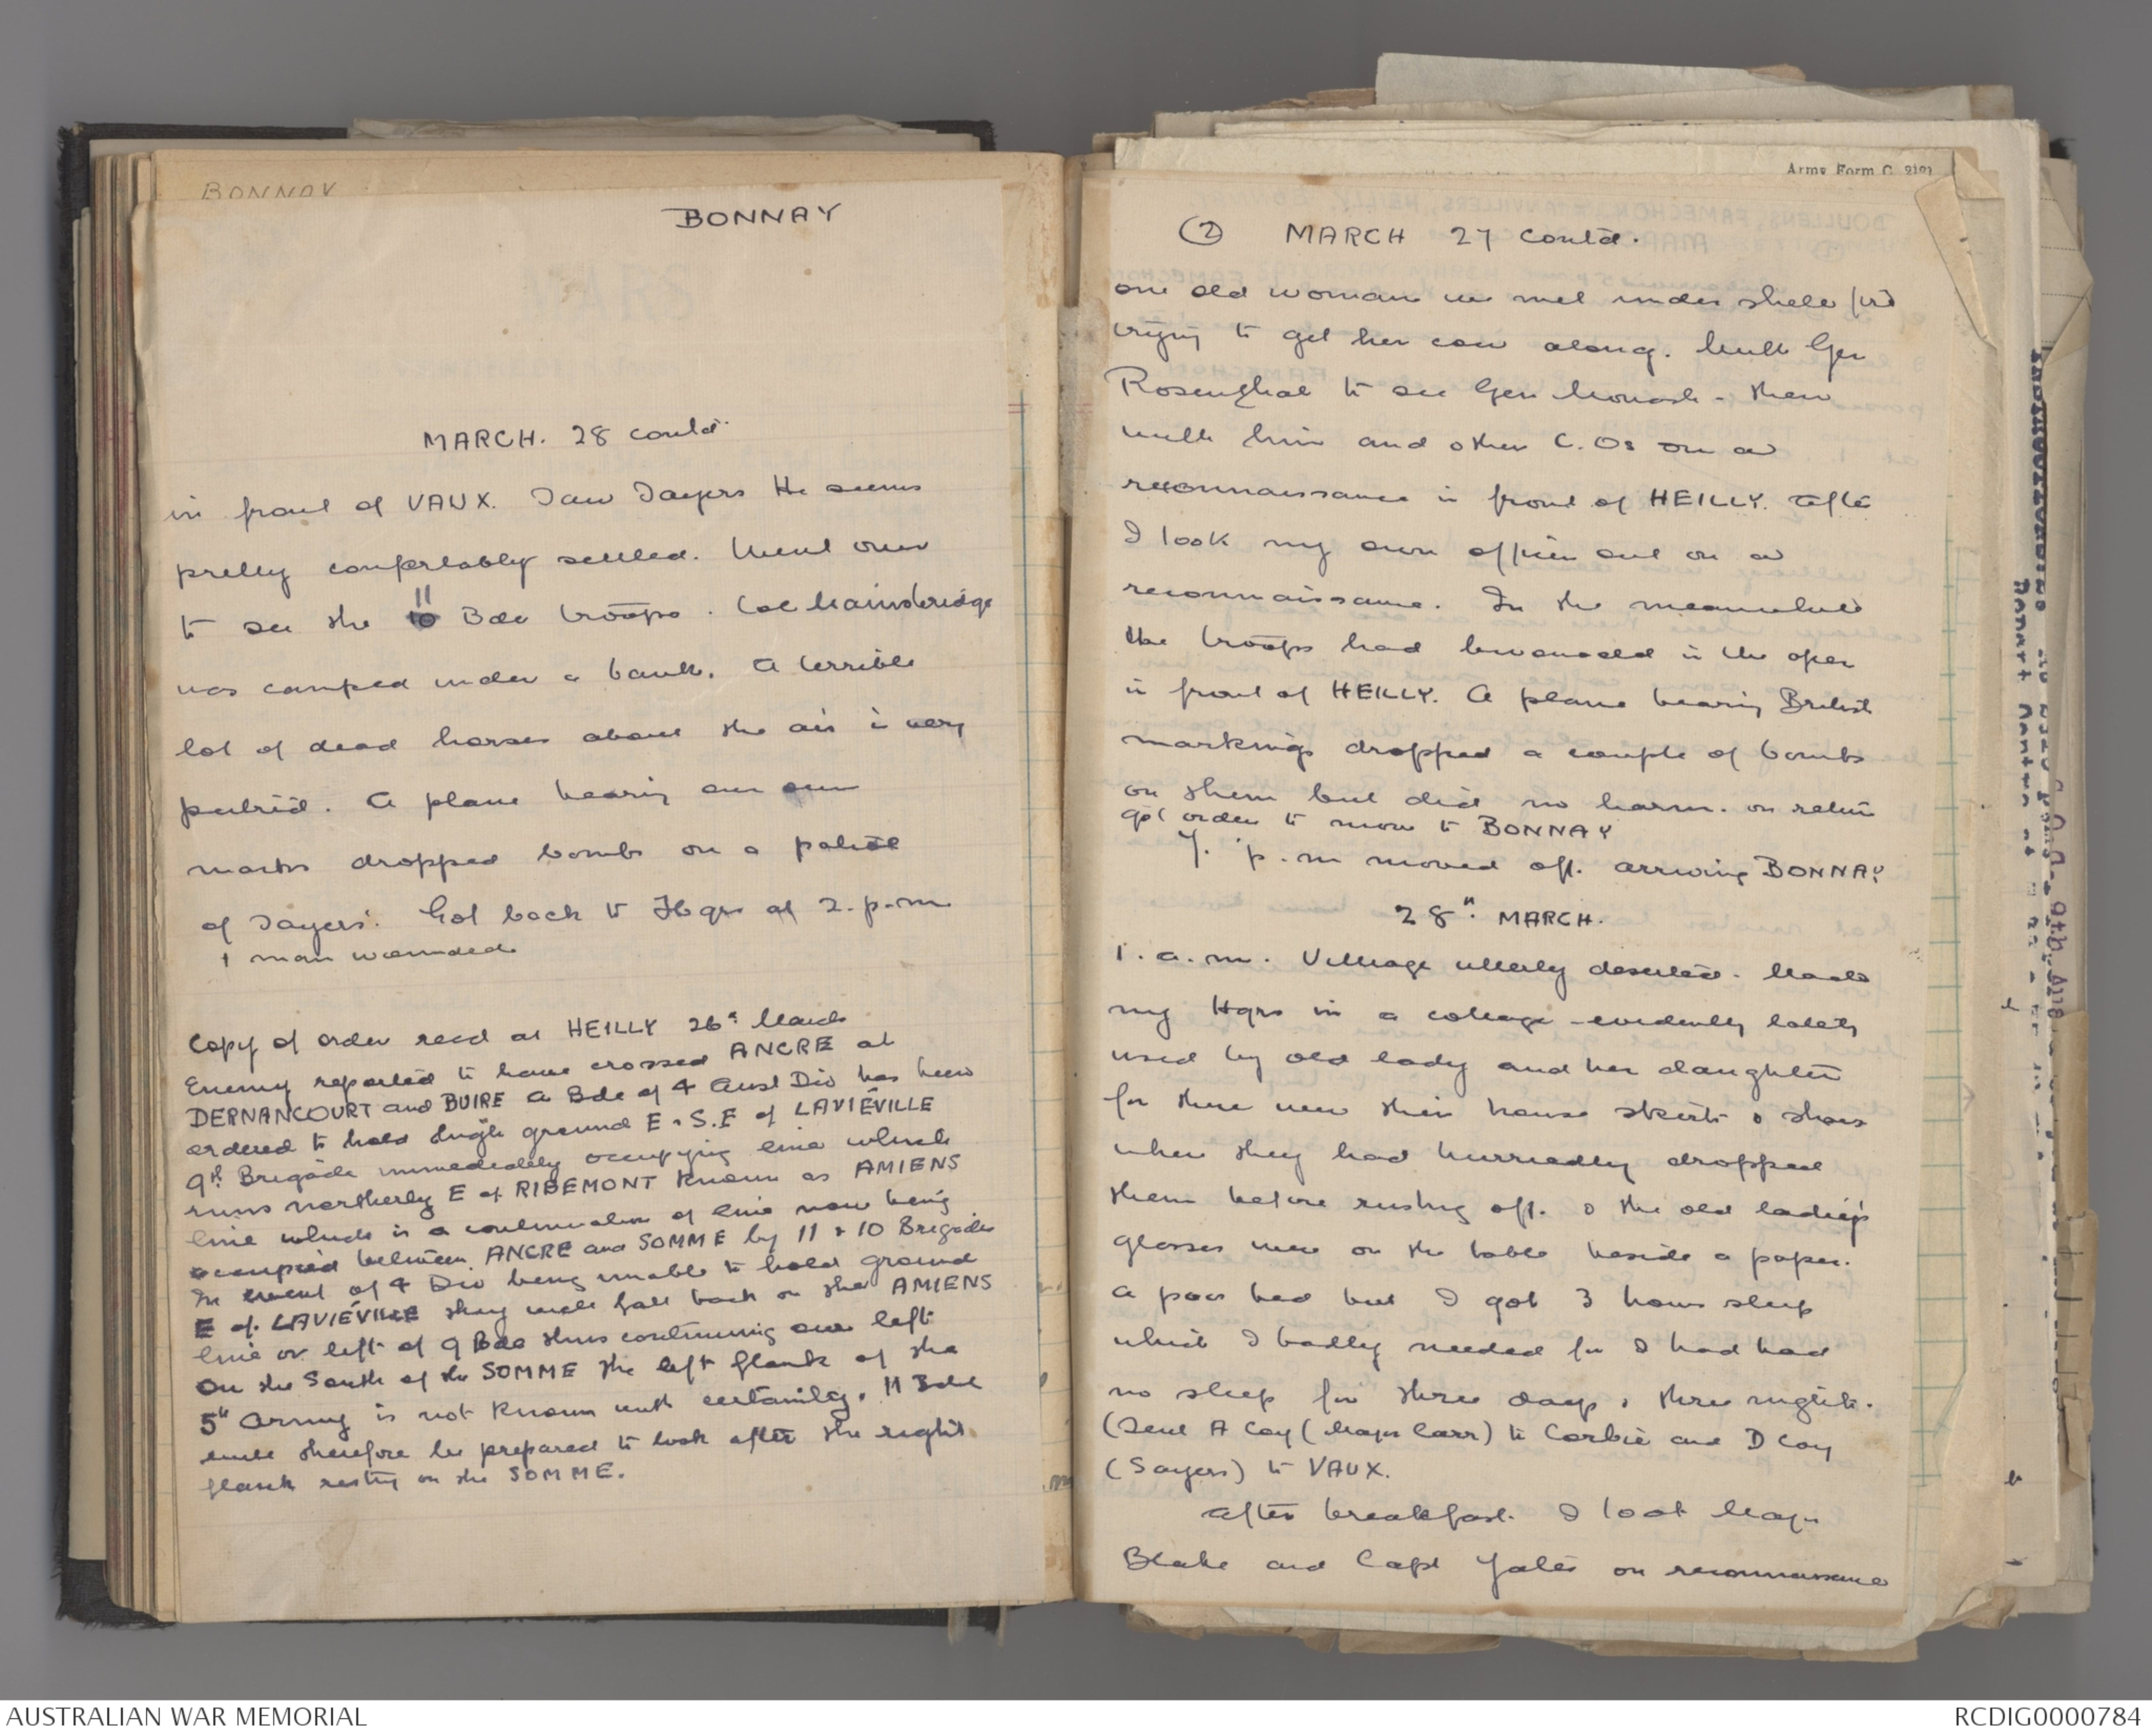 BONNAY
BONNAY
MARCH. 28 contd.
in front of VAUX. Saw Sayers He seems
pretty comfortably settled. Went over
to see the 10 11 Bde troops. Col Mainsbridge
was camped under a bank. A terrible
lot of dead horses about the air is very
putrid. A plane bearing our own
marks dropped bombs on a patrol
of Sayers'. Got back to Hqrs at 2. p.m.
1 man wounded
Copy of order recd at HEILLY 26th March
Enemy reported to have crossed ANCRE at
DERNANCOURT and BUIRE a Bde of 4 Aust Div has been
ordered to hold high ground E & S.E of LAVIÉVILLE
9th Brigade immediately occupying line which
runs northerly E of RIBEMONT known as AMIENS
line which is a continuation of line now being
occupied between ANCRE and SOMME by 11 & 10 Brigades
In event of 4 Div being unable to hold ground
E of LAVIÉVILLE they will fall back on the AMIENS
line on left of 9 Bde thus continuing our left
On the South of the SOMME the left flank of the
5th Army is not known with certainty. 11 Bde
will therefore be prepared to look after the right
flank resting on the SOMME.
Army Form C. 2121
(2) MARCH 27 contd.
one old woman we met under shell fire
trying to get her cow along. With Gen
Rosenthal to see Gen Monash - then
with him and other C.Os on a
reconnaissance in front of HEILLY. After
I took my own officers out on a
reconnaissance. In the meanwhile
the troops had bivouaced in the open
in front of HEILLY. A plane bearing British
markings dropped a couple of bombs
on them but did no harm. on return
got order to move to BONNAY
7. p.m moved off. arriving BONNAY
28th. MARCH.
1. a.m. Village utterly deserted. Made
my Hqrs in a cottage - evidently lately
used by old lady and her daughter
for there were their house skirts & shoes
where they had hurriedly dropped
them before rushing off. & the old ladies
glasses were on the table beside a paper.
A poor bed but I got 3 hours sleep
which I badly needed for I had had
no sleep for three days & three nights.
(Sent A Coy (Major Carr) to Corbie and D Coy
(Sayers) to VAUX.
After breakfast. I took Major
Blake and Capt Yates on reconnaissance
AUSTRALIAN WAR MEMORIAL
RCDIG0000784